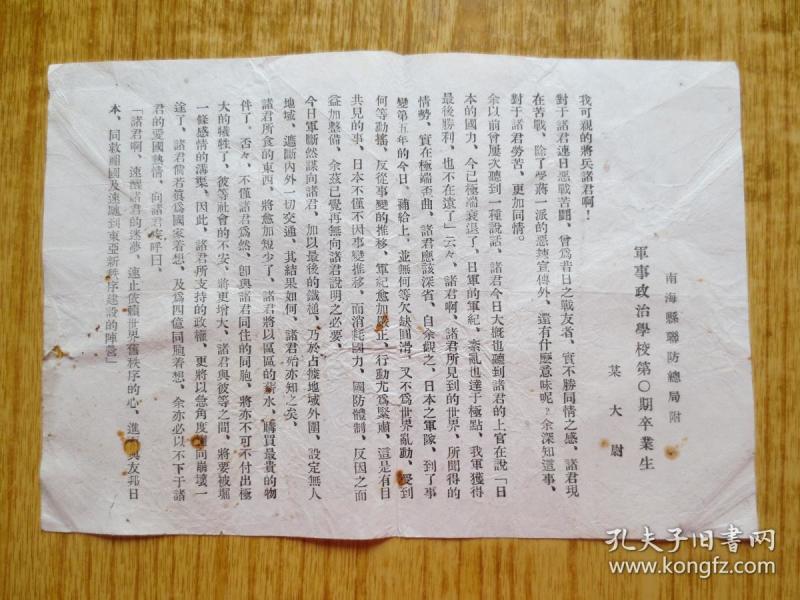 南海縣聯防總局附
軍事政治學校第〇期卒業生
某大尉
我可親的將兵諸君啊！
對于諸君連日惡戰苦鬪、曾爲昔日之戰友者、實不勝同情之感、諸君現
在苦戰、除了受蔣一派的惡辣宣傳外、還有什麽意味呢？余深知這事、
對于諸君勞苦、更加同情。
余以前曾屢次聽到一種說話、諸君今日大概也聽到諸君的上官在說「日
本的國力、今已極端衰退了、日軍的軍紀、紊亂也達于極點、我軍獲得
最後勝利、也不在遠了」云々、諸君啊、諸君所見到的世界、所聞得的
情勢、實在極端歪曲、諸君應該深省、自余觀之、日本之軍隊、到了事
變第五年的今日、補給上、並無何等欠缺圓滑、又不爲世界亂動、受到
何等動搖、反從事變的推移、軍紀愈加嚴正、行動尤爲緊肅、這是有目
共見的事、日本不僅不因事變推移、而消耗國力、國防體制、反因之而
益加整備、余茲已覺再無向諸君說明之必要、
今日軍斷然謀向諸君、加以最後的鐵槌、乃於占據地域外圍、設定無人
地域、遮斷內外一切交通、其結果如何、諸君殆亦知之矣、
諸君所食的東西、將愈加短少了、諸君將以區區的薪水、購買最貴的物
件了、否々、不僅諸君爲然、卽與諸君同住的同胞、將亦不可不付出極
大的犧牲了、彼等社會的不安、將更增大、諸君與彼等之間、將要被掘
一條感情的溝渠、因此、諸君所支持的政權、更將以急角度 向崩壞一
途了、諸君倘若眞爲國家着想、及爲四億同胞着想、余亦必以不下于諸
君的愛國熱情、向諸君 呼曰、
「諸君啊、速醒諸君的迷夢、速止依賴世界舊秩序的心、進 與友邦日
本、同救祖國及速 到東亞新秩序建設的陣營」
孔夫子旧书网
www.kongfz.com